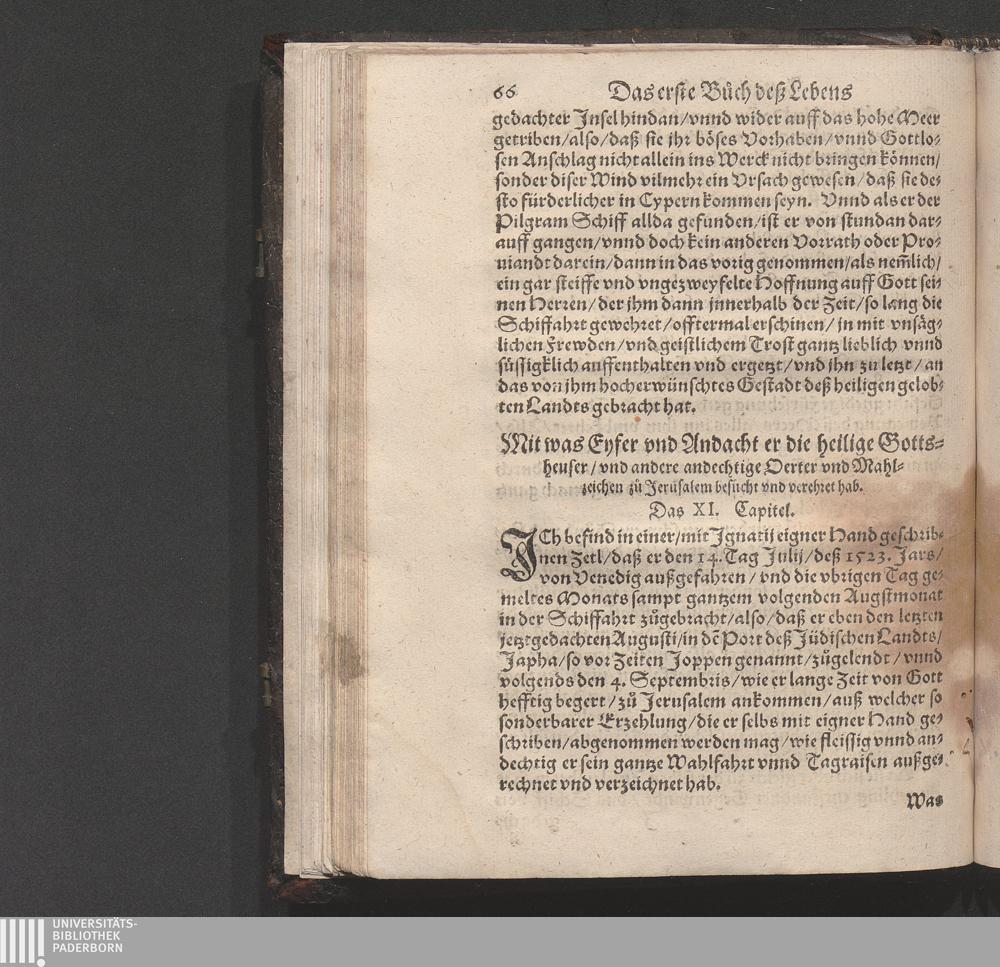 66 Das erste Bůch deß Lebens
gedachter Insel hindan/vnnd wider auff das hohe Meer
getriben/also/daß sie ihr böses Vorhaben/vnnd Gottlo-
sen Anschlag nicht allein ins Werck nicht bringen können/
sonder diser Wind vilmehr ein Vrsach gewesen/daß sie de-
sto fürderlicher in Cypern kommen seyn. Vnnd als er der
Pilgram Schiff allda gefunden/ist er von stundan dar-
auff gangen/vnnd doch kein anderen Vorrath oder Pro-
uiandt darein/dann in das vorig genommen/als nem̃lich/
ein gar steiffe vnd vngezweyfelte Hoffnung auff Gott sei-
nen Herren/der jhm dann jnnerhalb der Zeit/so lang die
Schiffahrt gewehret/offtermal erschinen/jn mit vnsäg-
lichen Frewden/vnd geistlichem Trost gantz lieblich vnnd
süssigklich auffenthalten vnd ergetzt/vnd jhn zu letzt/an
das von jhm hocherwünschtes Gestadt deß heiligen gelob-
ten Landts gebracht hat.
Mit was Eyfer vnd Andacht er die heilige Gotts-
heuser/vnd andere andechtige Oerter vnd Mahl-
zeichen zů Jerusalem besůcht vnd verehret hab.
Das XI. Capitel.
ICh befind in einer/mit Ignatij eigner Hand geschrib-
nen Zetl/daß er den 14. Tag Julij/deß 1523. Jars/
von Venedig außgefahren/vnd die vbrigen Tag ge-
meltes Monats sampt gantzem volgenden Augstmonat
in der Schiffahrt zůgebracht/also/daß er eben den letzten
jetztgedachten Augusti/in dẽ Port deß Jüdischen Landts/
Japha/so vor Zeiten Joppen genannt/zůgelendt/vnnd
volgends den 4. Septembris/wie er lange Zeit von Gott
hefftig begert/zů Jerusalem ankommen/auß welcher so
sonderbarer Erzehlung/die er selbs mit eigner Hand ge-
schriben/abgenommen werden mag/wie fleissig vnnd an-
dechtig er sein gantze Wahlfahrt vnnd Tagraisen außge-
rechnet vnd verzeichnet hab.
Was
UNIVERSITÄTS-
BIBLIOTHEK
PADERBORN